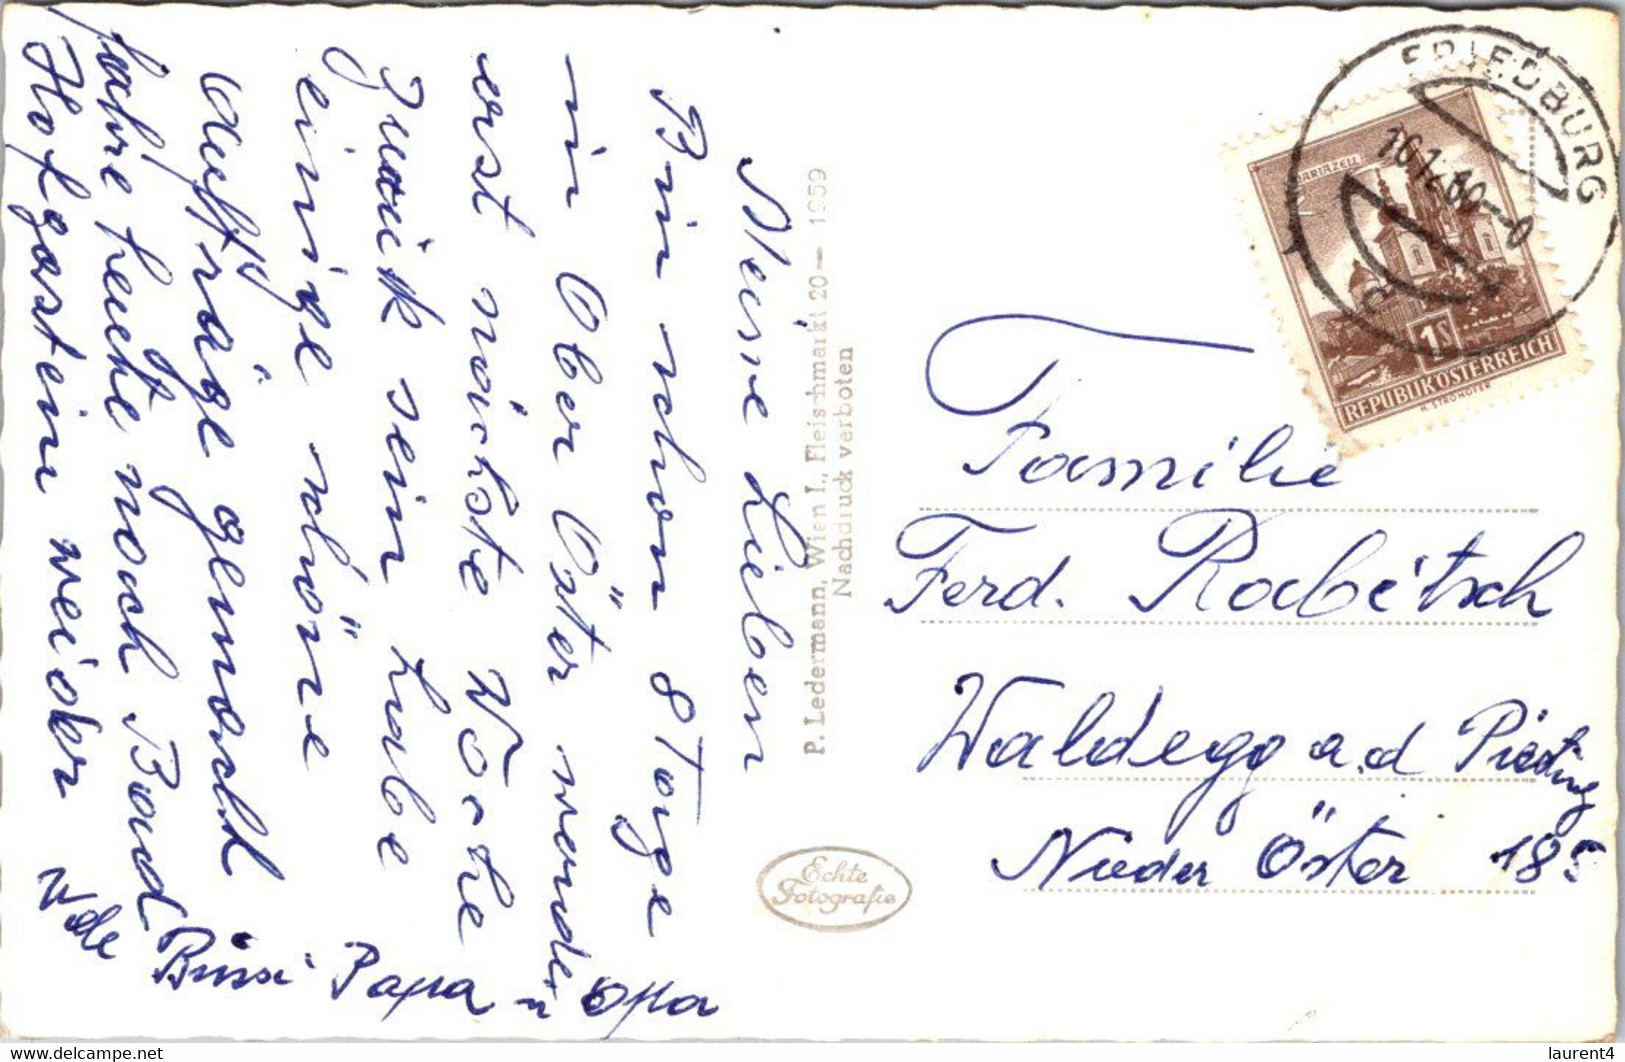 Meine Lieben
Bin schon 8 Tage
in Ober Öster
erst nächste Woche
zurück sein habe
einige schöne
Aufträge gemacht
fahre heute noch Bad
Hofgastein weider
Bussi Papa u Opa
P. Ledermann, Wien I., Fleischmarkt 20 — 1959
Nachdruck verboten
Echte
Fotografie
FRIEDBURG
MARIAZELL
1S
REPUBLIK ÖSTERREICH
H. STROHOFER
Familie
Ferd. Rabitsch
Waldegg a.d Piesting
Nieder Öster 185
laurent4
delcampe.net